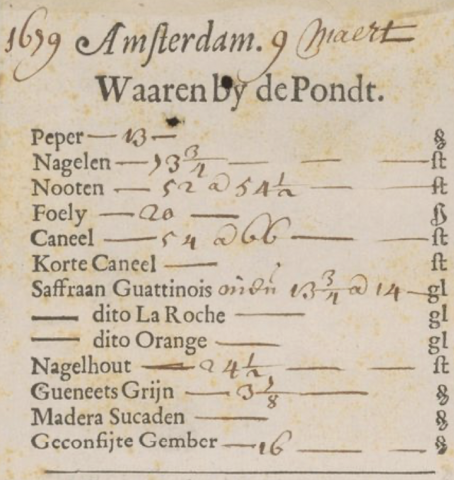 1679 Amsterdam. 9 Maert
Waaren by de Pondt.
Peper — 13 —
Nagelen — 73 3/4 — — — st
Nooten — 52 @ 54 1/2 — — st
Foely — 20 — ß
Caneel — 54 @ 66 — — st
Korte Caneel — st
Saffraan Guattinois 13 3/4 @ 14 — gl
— dito La Roche — gl
— dito Orange — gl
Nagelhout — 24 1/2 — — st
Gueneets Grijn — 3 7/8 —
Madera Sucaden —
Geconfijte Gember — 16 — —